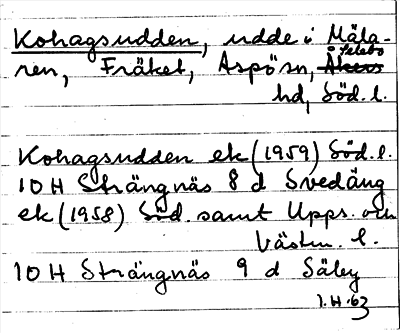 Kohagsudden, udde i Mäla-
ren, Fräket, Aspön, Åkers Selebo
hd, Söd. l.
Kohagsudden ek (1959) Söd. l.
10 H Strängnäs 8 d Svedäng
ek (1958) Söd. samt Upps. och
Västm. l.
10 H Strängnäs 9 d Säley
1.H.63